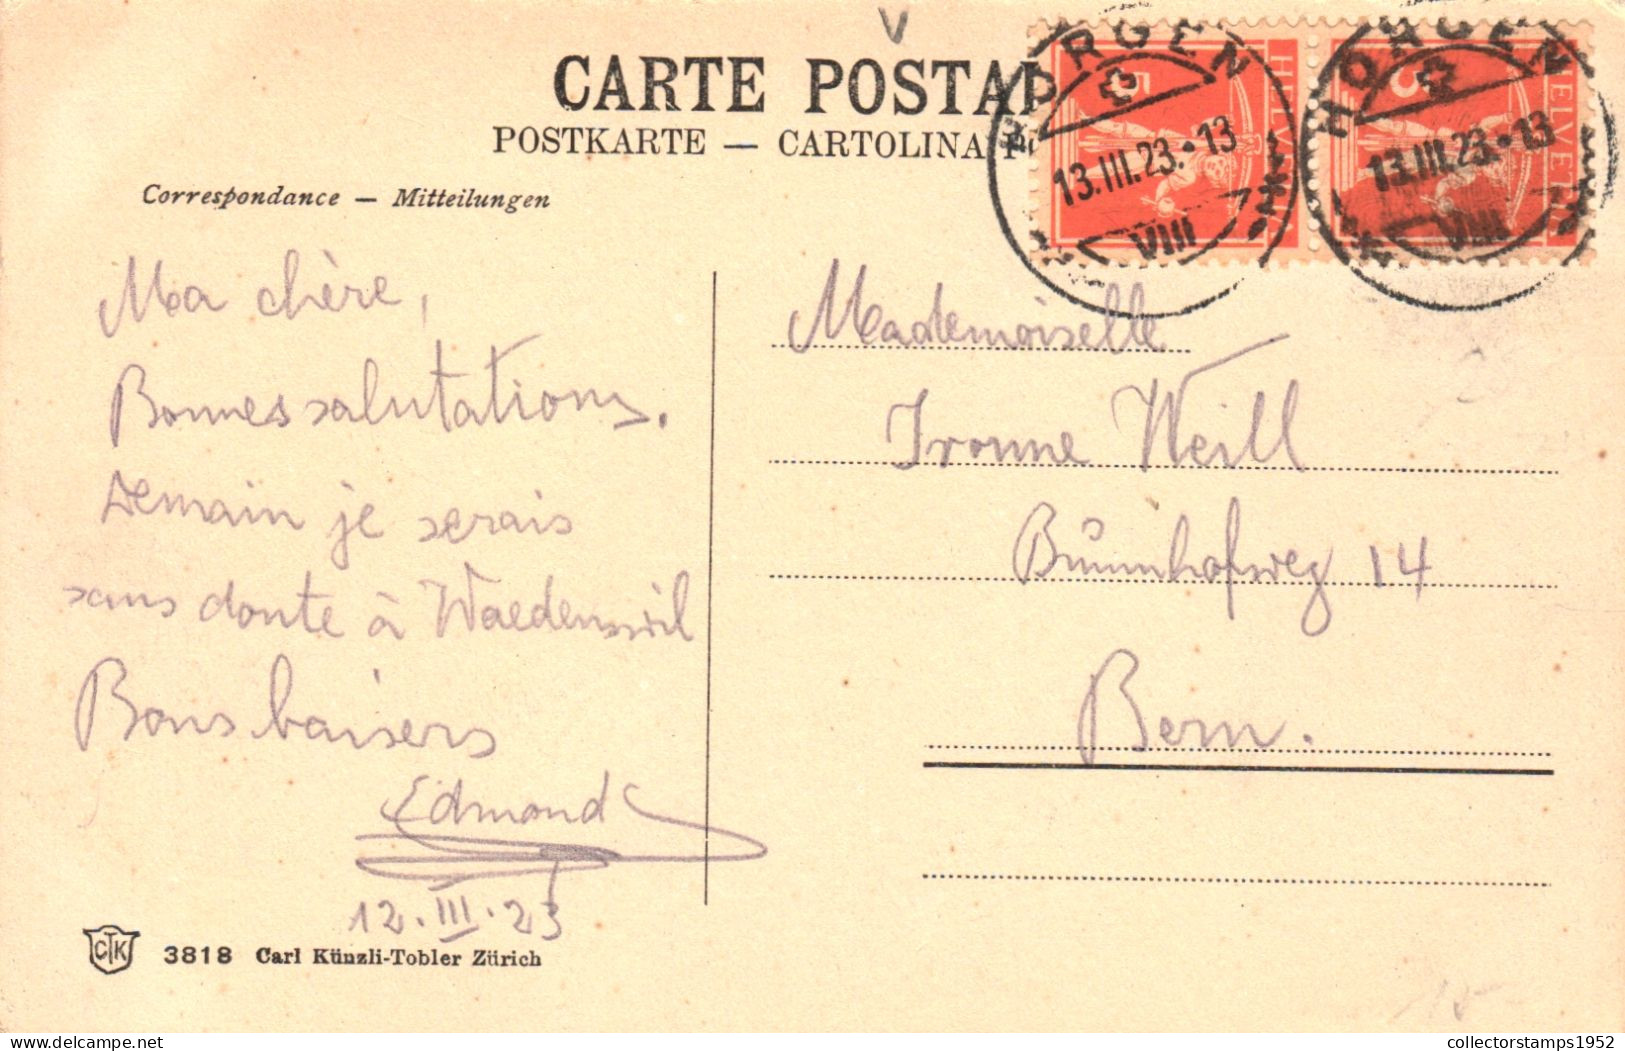 CARTE POSTAL
POSTKARTE — CARTOLINA P
Correspondance — Mitteilungen
HORGEN
13.III.23.•13
VIII
5
HELVETIA
HORGEN
13.III.23.•13
VIII
5
HELVETIA
Ma chère,
Bonnes salutations.
Demain je serais
sans doute à Waedenswil
Bons baisers
Edmond
12.III.23
Mademoiselle
Ivonne Weill
Brunnhofweg 14
Bern.
CTK 3818 Carl Künzli-Tobler Zürich
Own work
collectorstamps1952